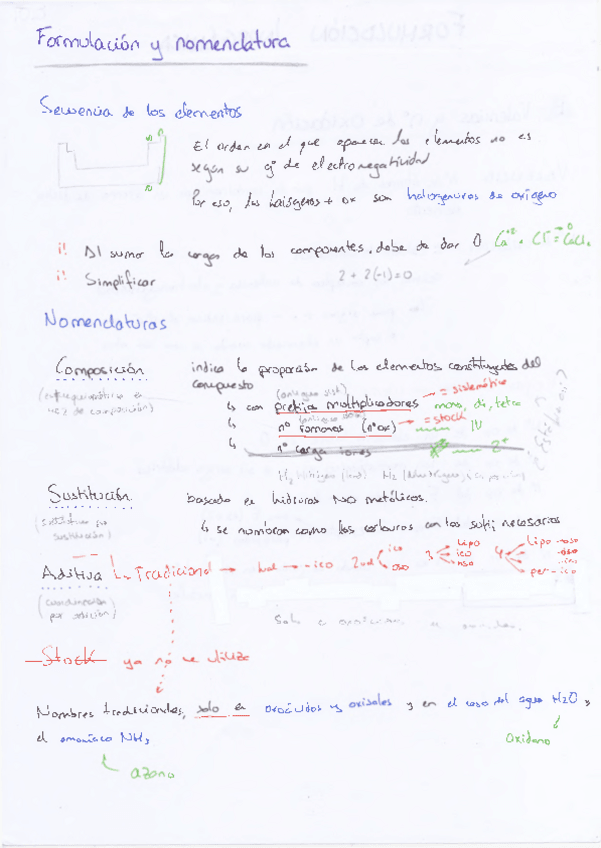 Formulación y nomenclatura
Secuencia de los elementos
El orden en el que aparecen los elementos no es
según su gº de electronegatividad
Por eso, los halógenos + ox son halogenuros de oxígeno
¡! Al sumar las cargas de los componentes, debe de dar 0 Ca+2 + Cl- = CaCl2
¡! Simplificar 2 + 2(-1) = 0
Nomenclaturas
Composición indica la proporción de los elementos constituyentes del
compuesto
(antigua sist)
↳ con prefijos multiplicadores → = sistemática mono, di, tetra
↳ nº romanos (nº ox) → = stock IV
↳ nº carga iones 2+
Sustitución basada en hidruros NO metálicos.
↳ se nombran como los carburos con los sufij necesarios
Aditiva Tradicional → 1 val → -ico 2 val ico oso 3 hipo ico oso 4 hipo -oso -oso -ico per-ico
(coordinación
por adición)
Solo
Stock ya no se utiliza
Nombres tradicionales, solo en oxoácidos y oxisales y en el caso del agua H2O y
el amoníaco NH3
oxidano
azano